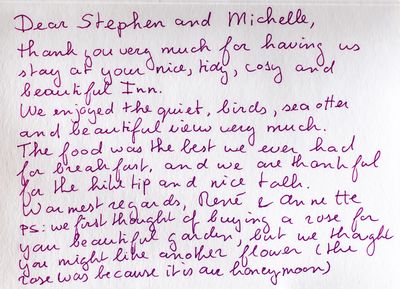 Dear Stephen and Michelle,
thank you very much for having us
stay at your nice, tidy, cosy and
beautiful Inn.
We enjoyed the quiet, birds, sea otter
and beautiful view very much.
The food was the best we ever had
for breakfast, and we are thankful
for the hike tip and nice talk.
Warmest regards, René & Annette
PS: we first thought of buying a rose for
your beautiful garden, but we thought
you might like another flower (the
rose was because it is our honeymoon)